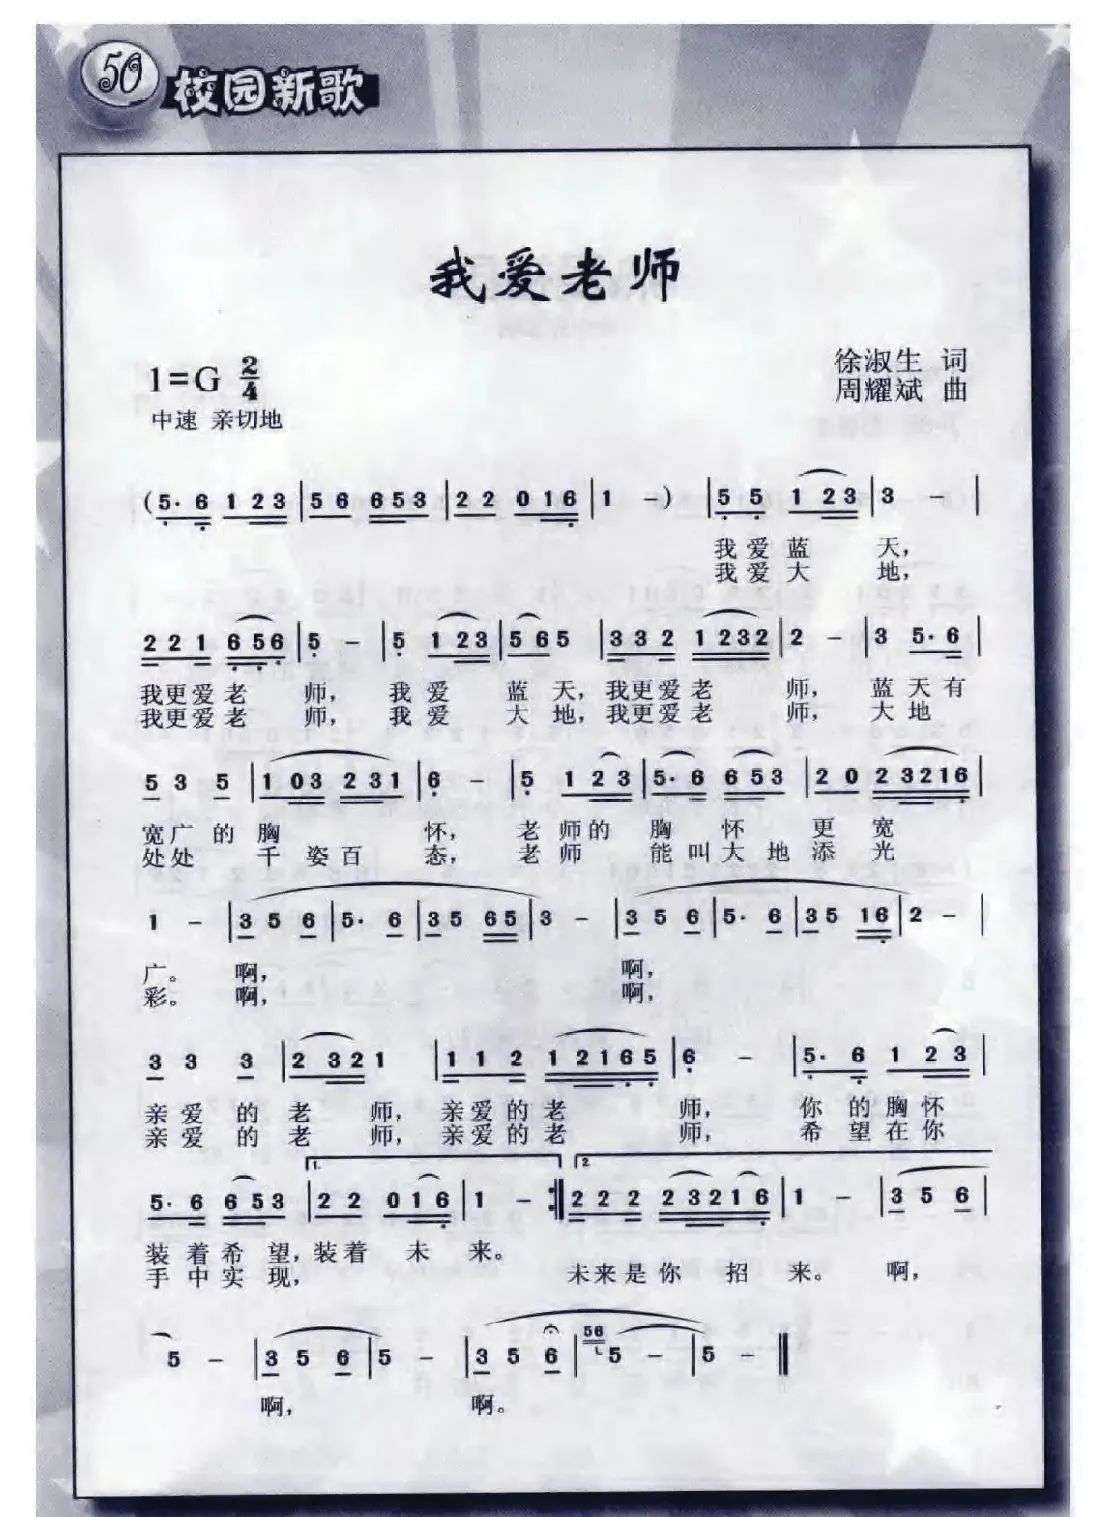 50 校园新歌
我爱老师
1=G 2/4
徐淑生 词
周耀斌 曲
中速 亲切地
(5· 6 1 2 3 | 5 6 6 5 3 | 2 2 0 1 6 | 1 - ) | 5 5 1 2 3 | 3 - |
我 爱 蓝 天,
我 爱 大 地,
2 2 1 6 5 6 | 5 - | 5 1 2 3 | 5 6 5 | 3 3 2 1 2 3 2 | 2 - | 3 5· 6 |
我更爱老 师, 我 爱 蓝 天, 我更爱老 师, 蓝 天 有
我更爱老 师, 我 爱 大 地, 我更爱老 师, 大 地
5 3 5 | 1 0 3 2 3 1 | 6 - | 5 1 2 3 | 5· 6 6 5 3 | 2 0 2 3 2 1 6 |
宽广 的 胸 怀, 老 师的 胸 怀 更 宽
处处 千 姿 百 态, 老 师 能叫大 地 添 光
1 - | 3 5 6 | 5· 6 | 3 5 6 5 | 3 - | 3 5 6 | 5· 6 | 3 5 1 6 | 2 - |
广。 啊, 啊,
彩。 啊, 啊,
3 3 3 | 2 3 2 1 | 1 1 2 1 2 1 6 5 | 6 - | 5· 6 1 2 3 |
亲 爱 的 老 师, 亲爱的老 师, 你 的胸怀
亲 爱 的 老 师, 亲爱的老 师, 希 望在你
1. 2
5· 6 6 5 3 | 2 2 0 1 6 | 1 - :‖ 2 2 2 2 3 2 1 6 | 1 - | 3 5 6 |
装 着 希 望, 装着 未 来。
手 中 实 现, 未来是你 招 来。 啊,
5 - | 3 5 6 | 5 - | 3 5 6 | 56 5 - | 5 - ‖
啊, 啊。